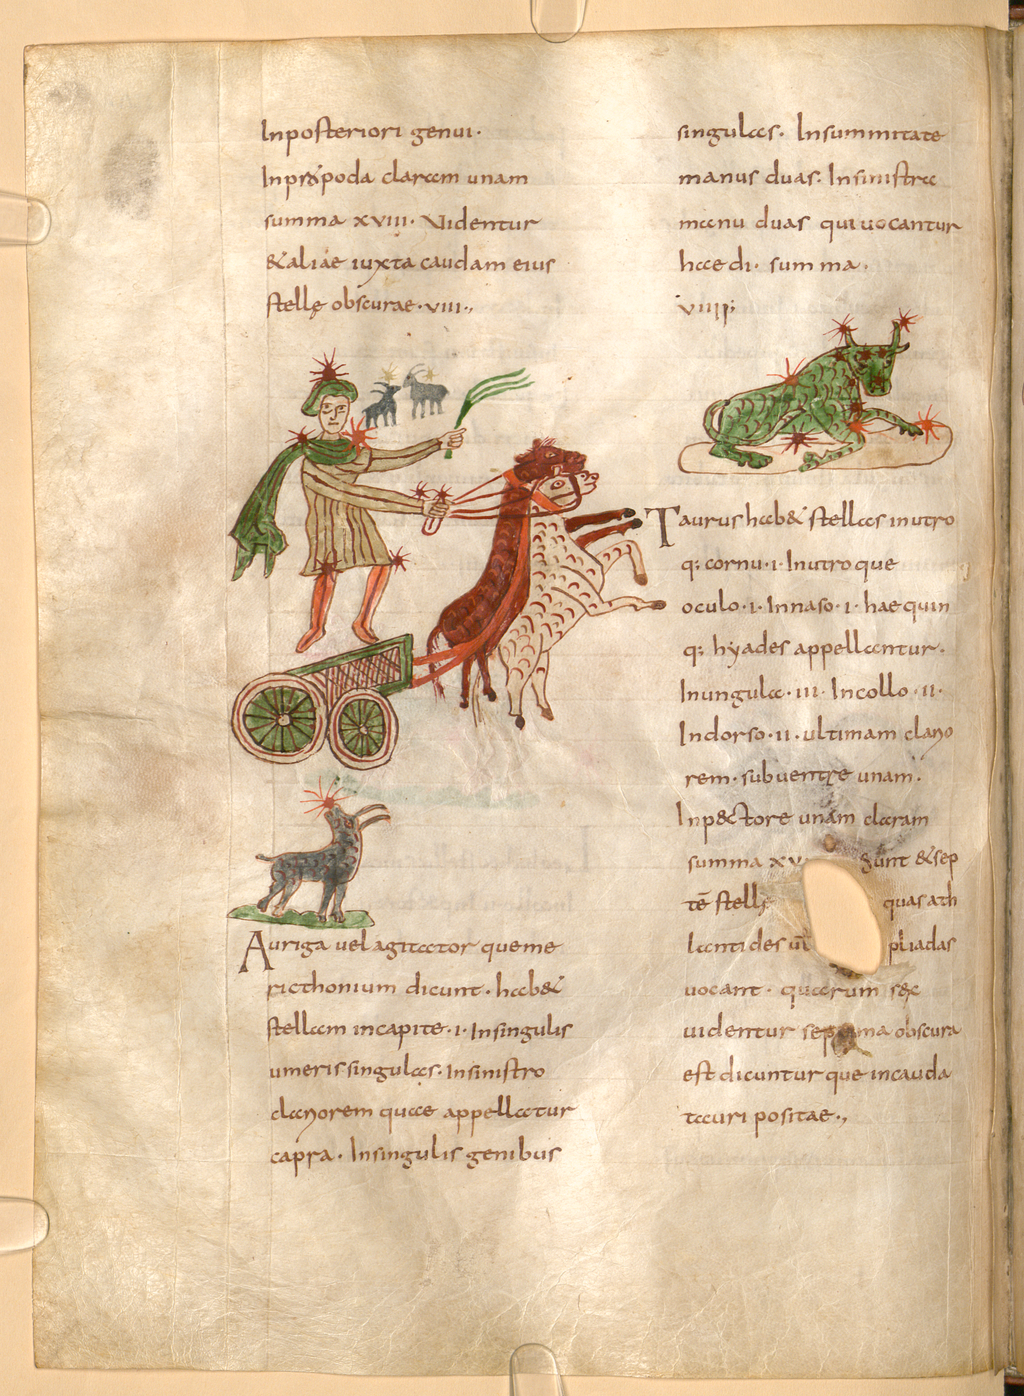 Inposteriori genui·
Inpr&poda claram unam
summa xviii· Videntur
&aliae iuxta caudam eius
stellę obscurae·viii·,
Auriga uel agitator queme
ricthonium dicunt· hab&
stellam incapite·i· Insingulis
umerissingulas· Insinistro
clariorem quae appellatur
capra· Insingulis genibus
singulas· Insummitate
manus duas· Insinistra
manu duas quiuocantur
haedi· summa·
viiii;
Taurus hab& stellas inutro
q; cornu·i· Inutroque
oculo·i· Innaso·i· haequin
q; hyades appellantur·
Inungula·iii· Incollo·ii·
Indorso·ii· ultimam clario
rem· subuentre unam·
Inp&tore unam claram
summa xv sunt &sep
tē stellę quasath
lantides uł pliadas
uocant· quarum sex
uidentur septima obscura
est dicuntur que incauda
tauri positae·,